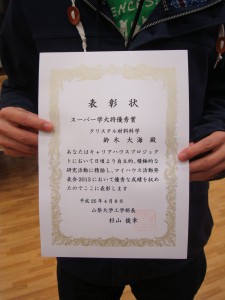 表彰状
スーパー学大将優秀賞
クリスタル材料科学
鈴木 大海 殿
あなたはキャリアハウスプロジェクトにおいて日頃より自主的、積極的な
研究活動に精励し、マイハウス活動発
表会2013において優秀な成績を収め
たのでここに表彰します
平成25年4月8日
山梨大学工学部長
杉山 俊幸